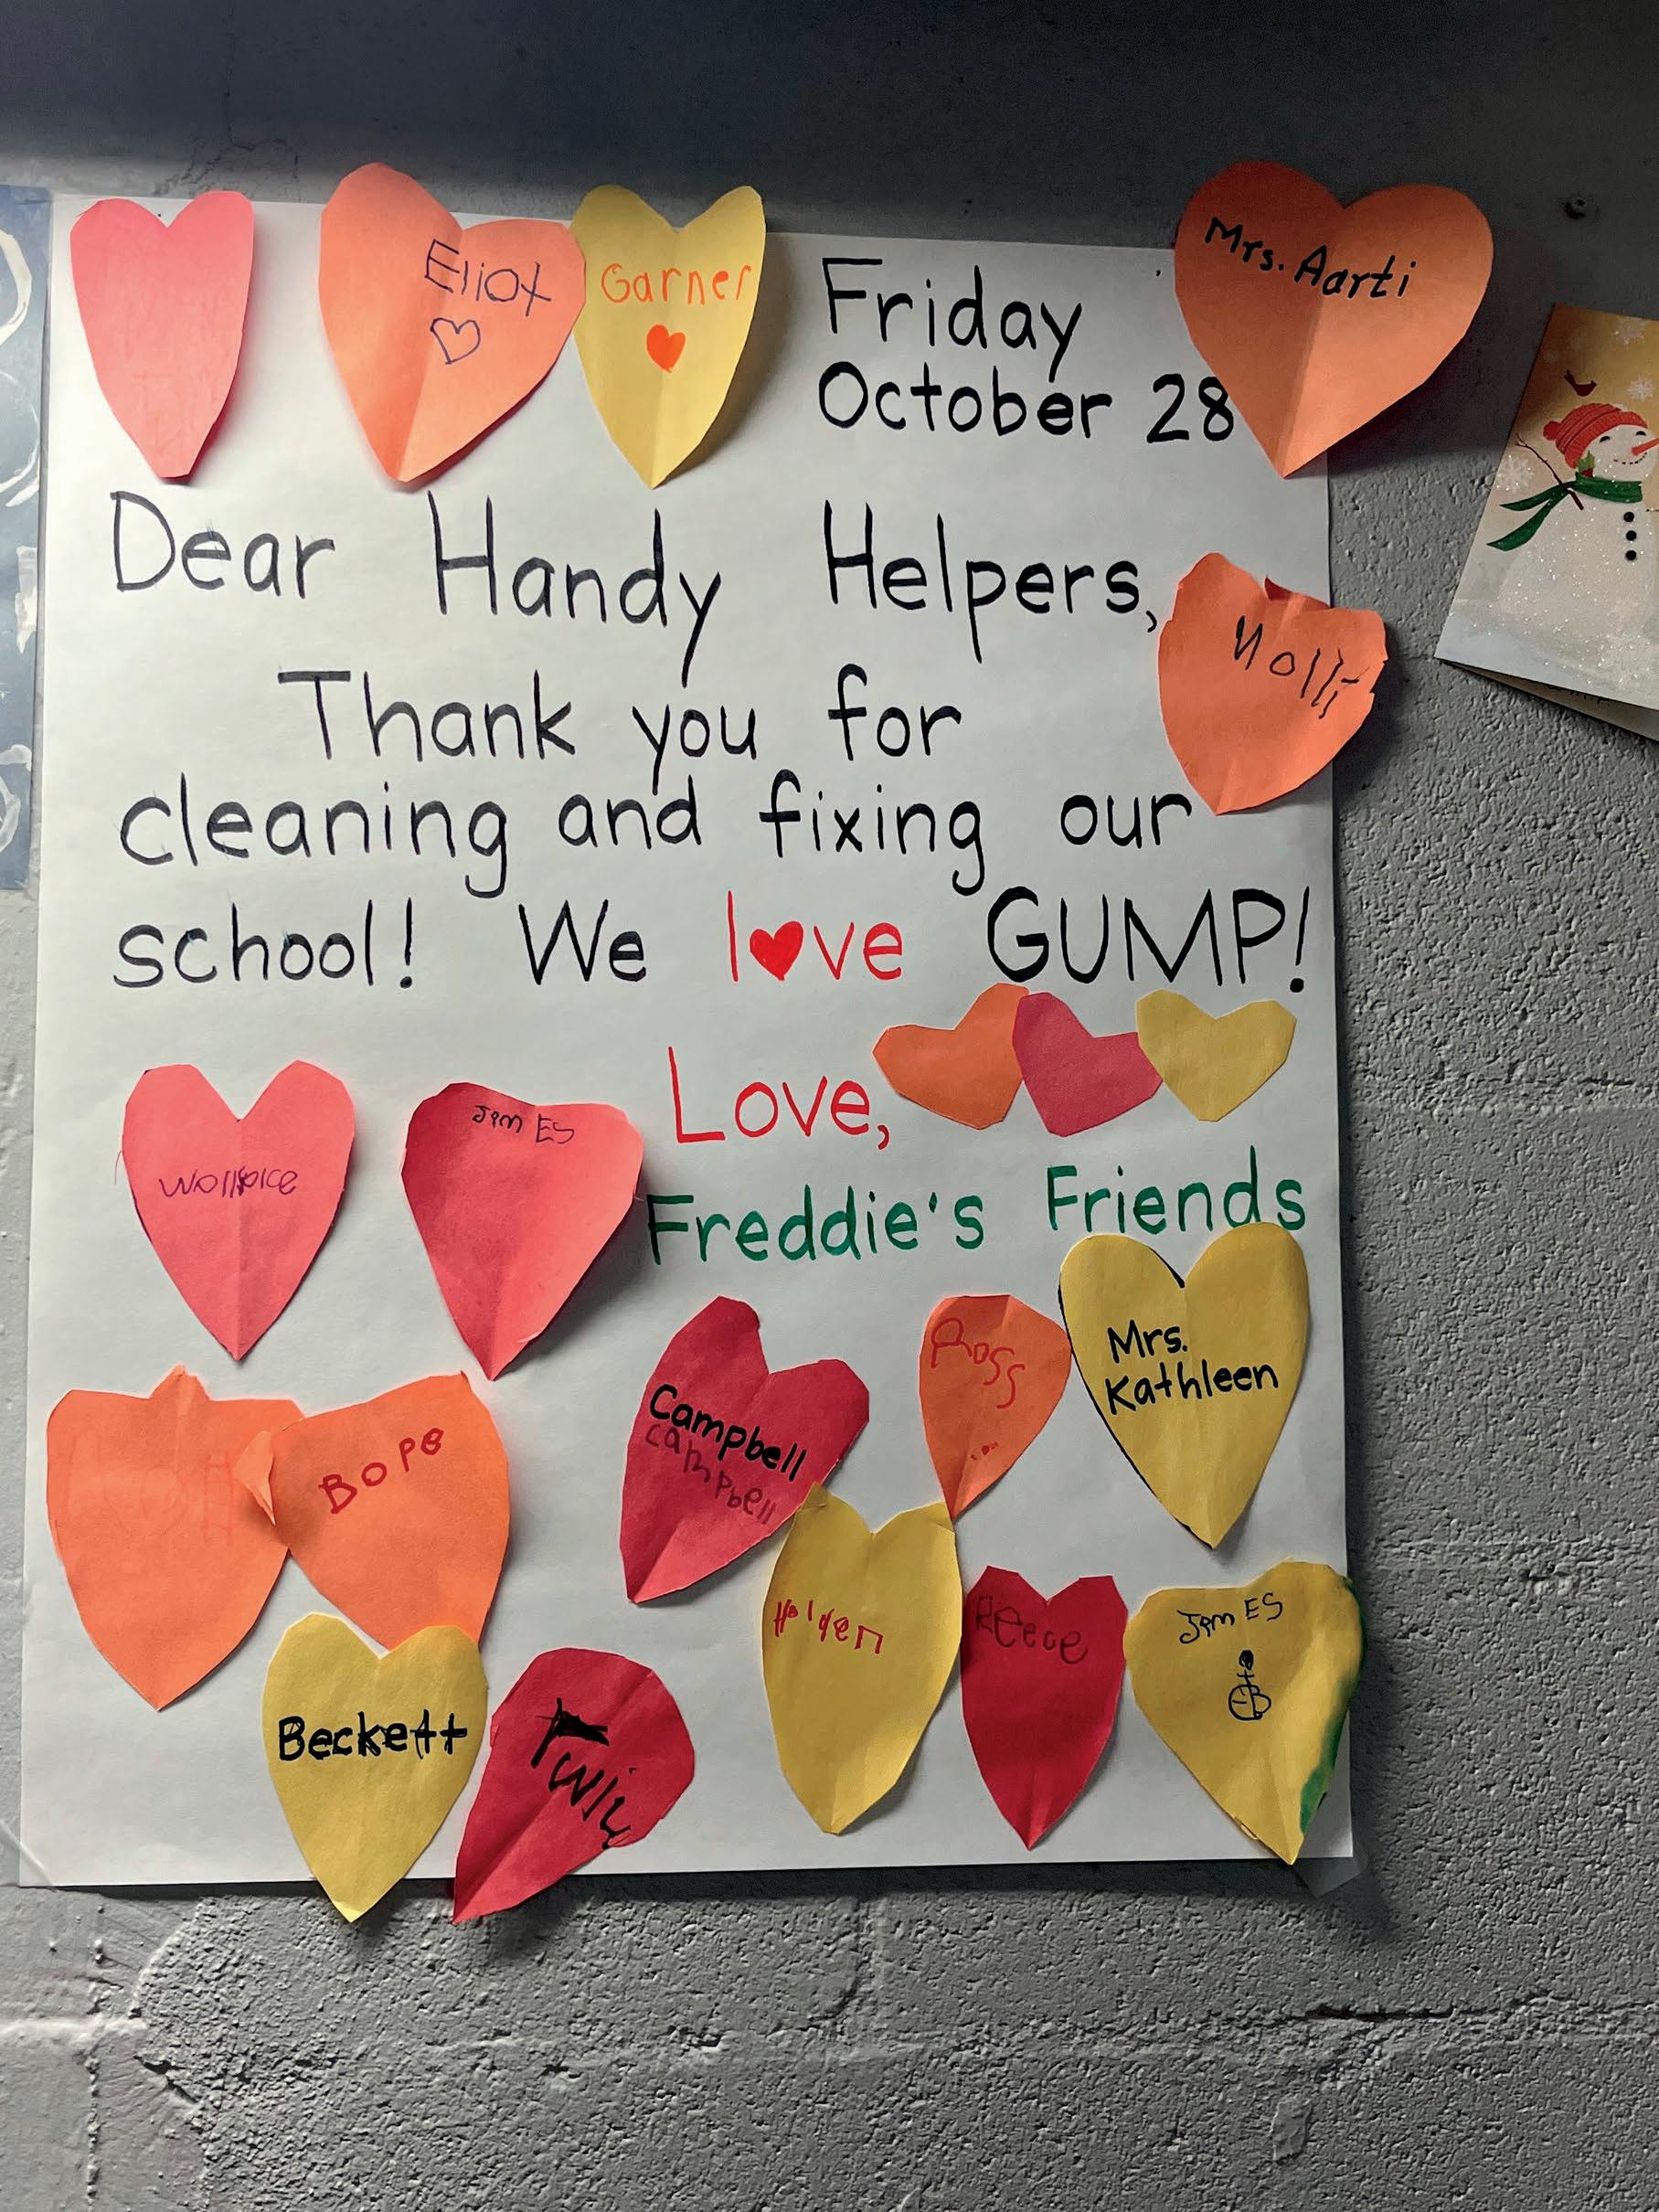 Eliot
Garner
Friday
October 28
Mrs. Aarti
Dear Handy Helpers,
Thank you for
cleaning and fixing our
school! We love GUMP!
Love,
Freddie's Friends
JamES
Campbell
campbell
Ross
Mrs.
Kathleen
Bope
Beckett
Holden
Reece
JamES